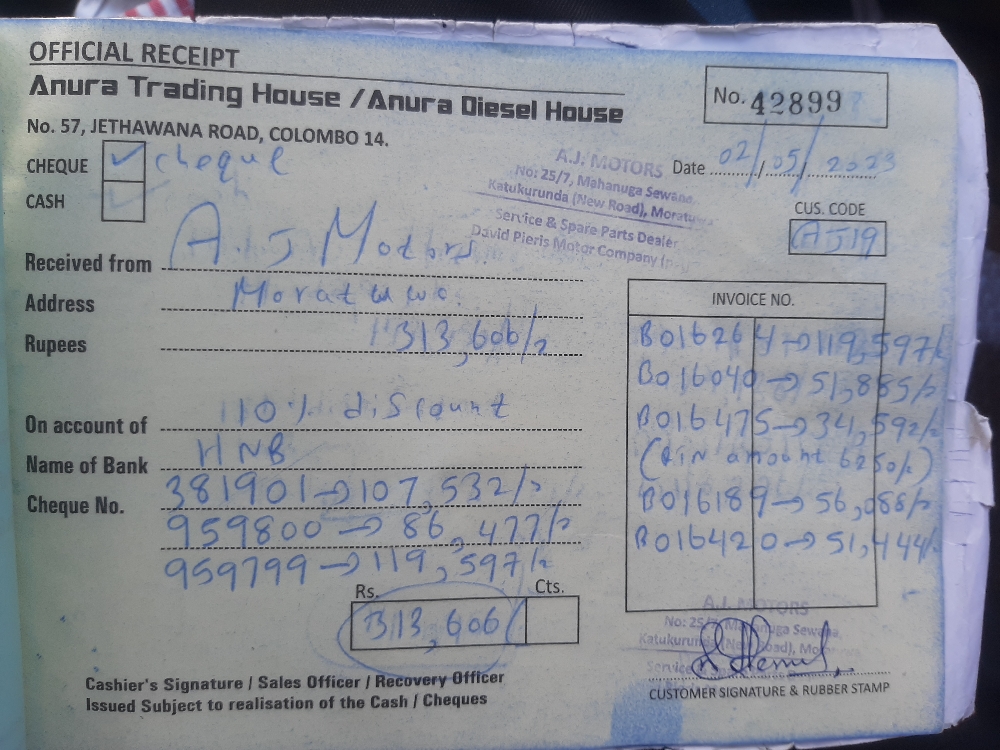 OFFICIAL RECEIPT
Anura Trading House / Anura Diesel House
No. 42899
No. 57, JETHAWANA ROAD, COLOMBO 14.
Date 02/05/2023
CHEQUE cheque
CASH
A.J. MOTORS
No: 25/7, Mahanuga Sewana,
Katukurunda (New Road), Moratuwa
Service & Spare Parts Dealer
David Pieris Motor Company
CUS. CODE
AJ19
Received from A.J Motors
Address Moratuwa
Rupees 313,606/=
On account of 10% discount
Name of Bank HNB
Cheque No. 381901→107,532/=
959800→86,477/=
959799→119,597/=
Rs. Cts.
313,606/
INVOICE NO.
B016264→119,597/=
B016040→51,885/=
B016475→34,592/=
amount 6250/=)
B016189→56,088/=
B016420→51,444/=
A.J. MOTORS
No: 25/7, Mahanuga Sewana,
Katukurunda (New Road),
Service
CUSTOMER SIGNATURE & RUBBER STAMP
Cashier's Signature / Sales Officer / Recovery Officer
Issued Subject to realisation of the Cash / Cheques